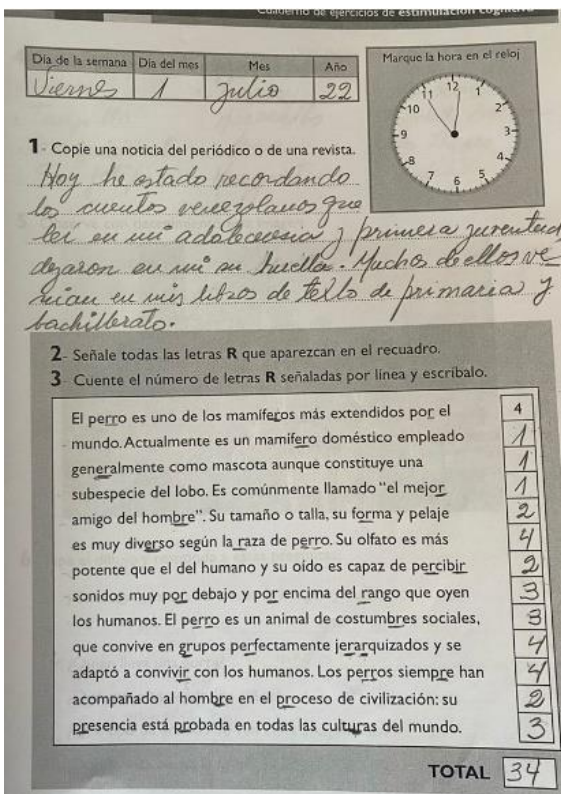 Cuaderno de ejercicios de estimulación cognitiva
Día de la semana Día del mes Mes Año
Viernes 1 Julio 22
Marque la hora en el reloj
12
11 1
10 2
9 3
8 4
7 5
6
1- Copie una noticia del periódico o de una revista.
Hoy he estado recordando
los cuentos venezolanos que
leí en mi adolecencia y primera juventud
dejaron en mi su huella. Muchos de ellos ve
nian en mis libros de texto de primaria y
bachillerato.
2- Señale todas las letras R que aparezcan en el recuadro.
3- Cuente el número de letras R señaladas por línea y escríbalo.
El perro es uno de los mamíferos más extendidos por el 4
mundo. Actualmente es un mamífero doméstico empleado 1
generalmente como mascota aunque constituye una 1
subespecie del lobo. Es comúnmente llamado “el mejor 1
amigo del hombre”. Su tamaño o talla, su forma y pelaje 2
es muy diverso según la raza de perro. Su olfato es más 4
potente que el del humano y su oído es capaz de percibir 2
sonidos muy por debajo y por encima del rango que oyen 3
los humanos. El perro es un animal de costumbres sociales, 3
que convive en grupos perfectamente jerarquizados y se 4
adaptó a convivir con los humanos. Los perros siempre han 4
acompañado al hombre en el proceso de civilización: su 2
presencia está probada en todas las culturas del mundo. 3
TOTAL 34